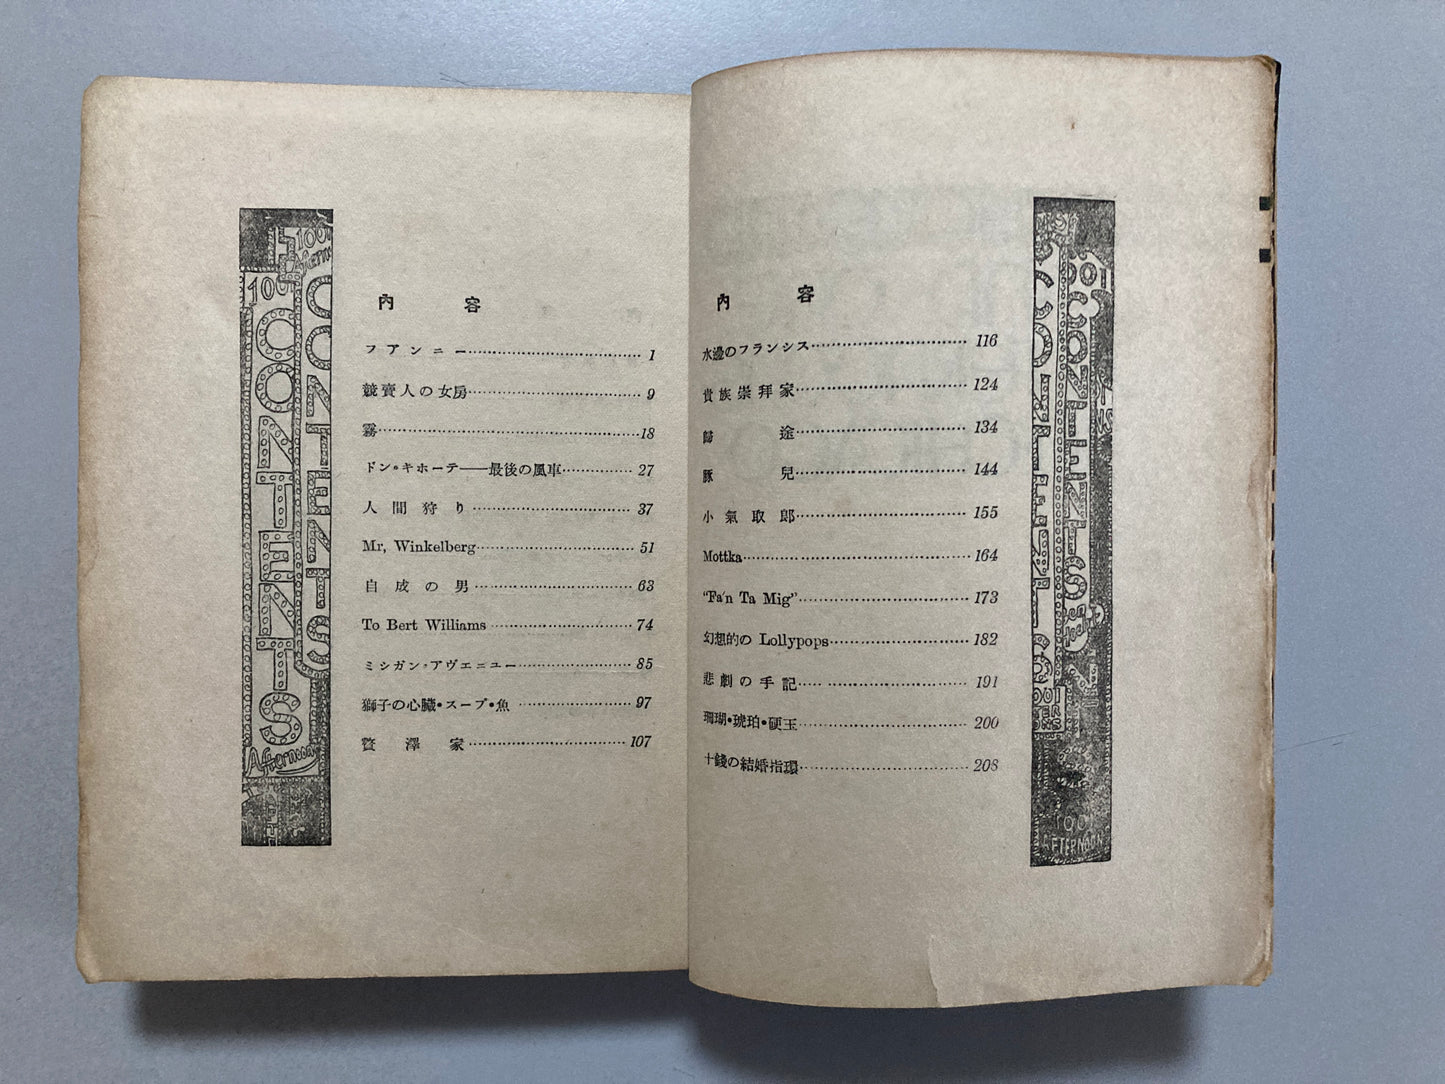 內容
フアンニー……1
競賣人の女房……9
霧……18
ドン・キホーテ——最後の風車……27
人間狩り……37
Mr, Winkelberg……51
自成の男……63
To Bert Williams……74
ミシガン・アヴエニユー……85
獅子の心臓・スープ・魚……97
贅澤家……107
100
CONTENTS
CONTENTS
Afternoon
內容
水邊のフランシス……116
貴族崇拜家……124
歸途……134
豚兒……144
小氣取郎……155
Mottka……164
“Fa'n Ta Mig”……173
幻想的の Lollypops……182
悲劇の手記……191
珊瑚・琥珀・硬玉……200
十錢の結婚指環……208
CONTENTS
CONTENTS
1001
AFTERNOON